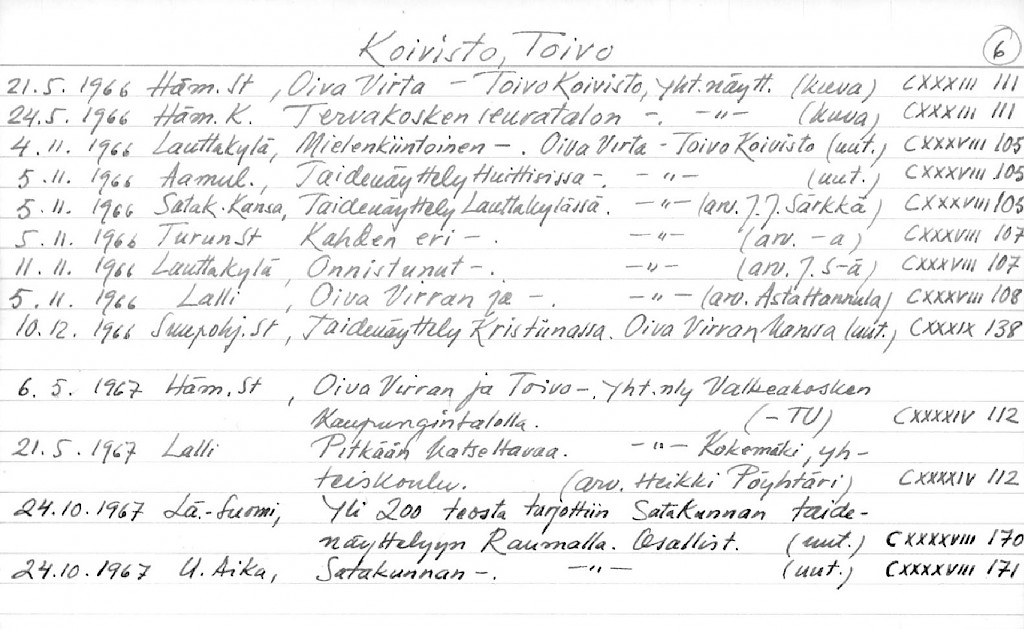 Koivisto, Toivo 6
21.5.1966 Häm.St, Oiva Virta - Toivo Koivisto, yht.näytt. (kuva) CXXXIII 111
24.5.1966 Häm.K. Tervakosken seuratalon -. -"- (kuva) CXXXIII 111
4.11.1966 Lauttakylä, Mielenkiintoinen -. Oiva Virta - Toivo Koivisto (uut.) CXXXVIII 105
5.11.1966 Aamul., Taidenäyttely Huittisissa -. -"- (uut.) CXXXVIII 105
5.11.1966 Satak.Kansa, Taidenäyttely Lauttakylässä. -"- (arv. J.J. Särkkä) CXXXVIII 105
5.11.1966 TurunSt Kahden eri -. -"- (arv. -a) CXXXVIII 107
11.11.1966 Lauttakylä, Onnistunut -. -"- (arv. J.S-ä) CXXXVIII 107
5.11.1966 Lalli, Oiva Virran ja -. -"- (arv. Asta Hannula) CXXXVIII 108
10.12.1966 Suupohj.St, Taidenäyttely Kristiinassa. Oiva Virran kanssa (uut.) CXXXIX 138
6.5.1967 Häm.St, Oiva Virran ja Toivo -. yht.nly Valkeakosken
kaupungintalolla. (-TU) CXXXXIV 112
21.5.1967 Lalli Pitkään katseltavaa. -"- Kokemäki, yh-
teiskoulu. (arv. Heikki Pöyhtäri) CXXXXIV 112
24.10.1967 Lä.-Suomi, Yli 200 teosta tarjottiin Satakunnan taide-
näyttelyyn Raumalla. Osallist. (uut.) CXXXXVIII 170
24.10.1967 U.Aika, Satakunnan -. -"- (uut.) CXXXXVIII 171